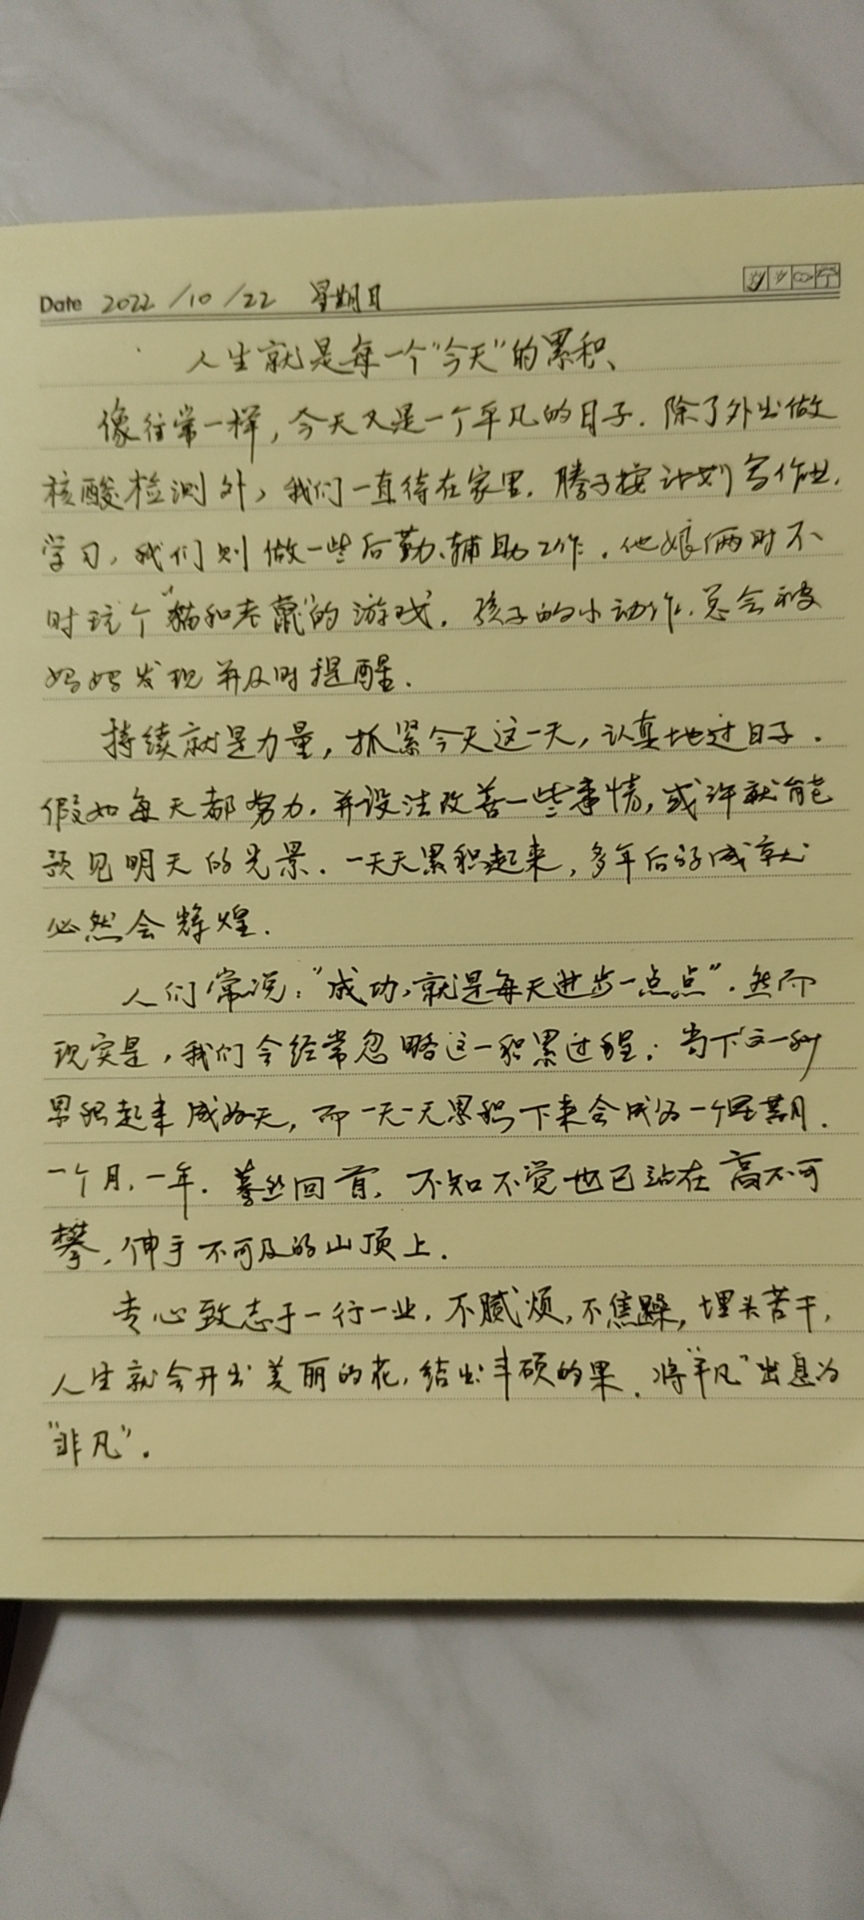 Date 2022/10/22 星期日
人生就是每一个“今天”的累积、
像往常一样，今天又是一个平凡的日子．除了外出做
核酸检测外，我们一直待在家里．腾子按计划写作业．
学习，我们则做一些后勤、辅助工作．他娘俩时不
时玩个“猫和老鼠”的游戏．孩子的小动作，总会被
妈妈发现并及时提醒．
持续就是力量，抓紧今天这一天，认真地过日子．
假如每天都努力．并设法改善一些事情，或许就能
预见明天的光景．一天天累积起来，多年后的成就
必然会辉煌．
人们常说：“成功，就是每天进步一点点”．然而
现实是，我们会经常忽略这一积累过程：当下这一刻
累积起来成好天，而一天一天累积下来会成为一个星期．
一个月，一年．蓦然回首，不知不觉也已站在高不可
攀，伸手不可及的山顶上．
专心致志于一行一业，不腻烦，不焦躁，埋头苦干，
人生就会开出美丽的花，结出丰硕的果．将“平凡”出息为
“非凡”．